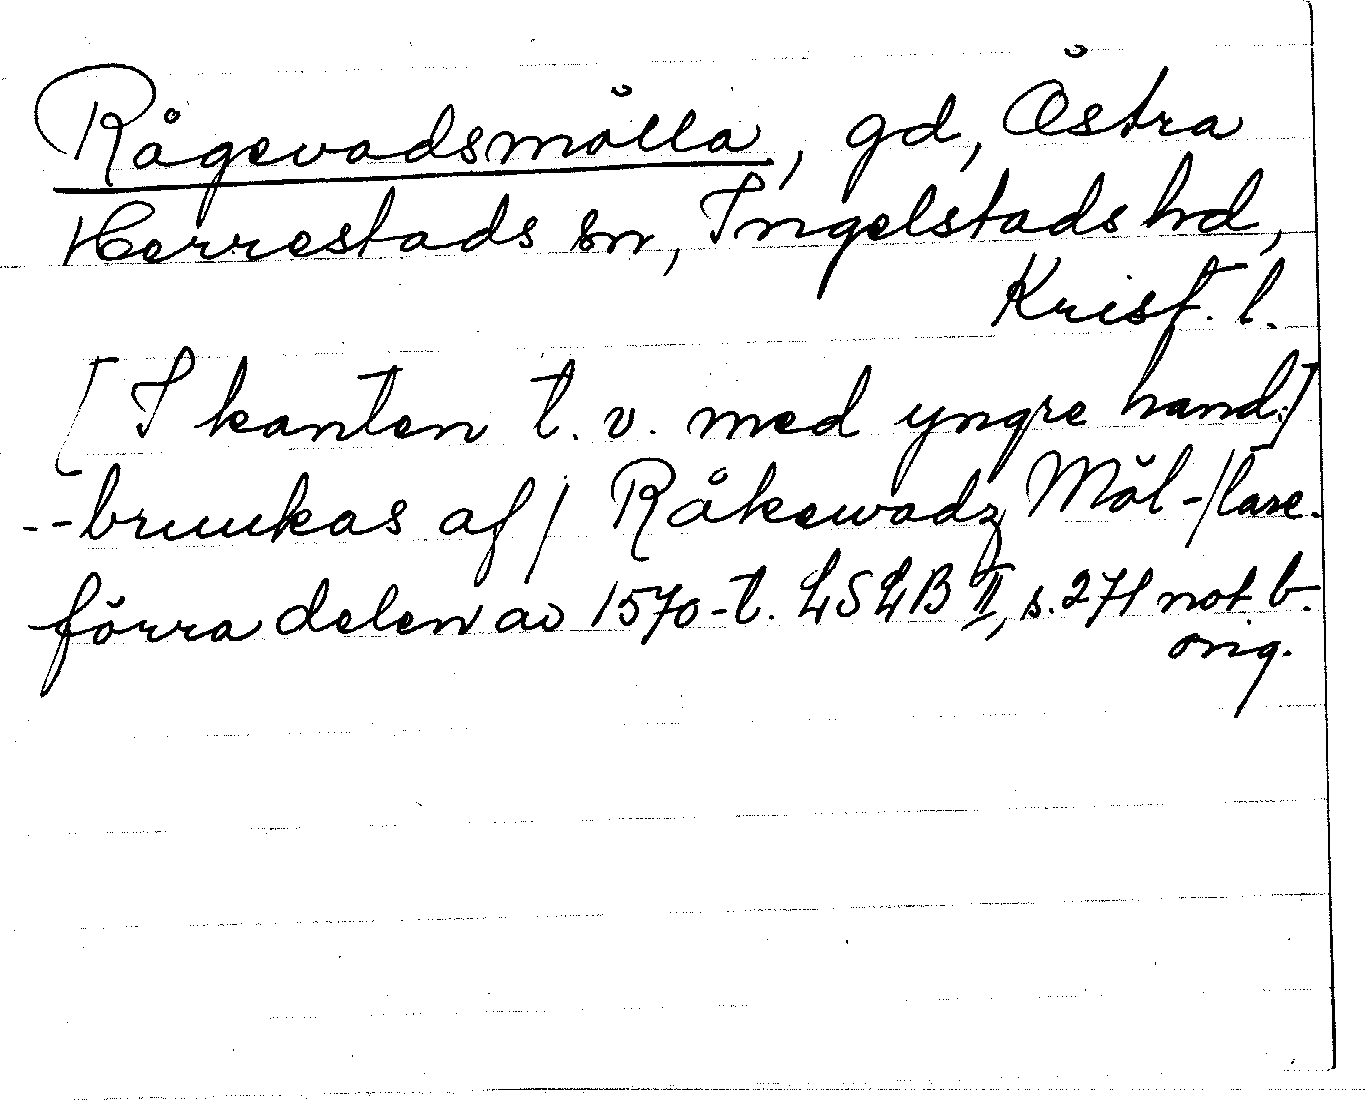 Rågevadsmölla, gd, Östra
Herrestads sn, Ingelstads hd,
Krist. l.
[I kanten t. v. med yngre hand:]
--bruukas af/ Råkewadz Möl-/lare.
förra delen av 1570-t. LSLB II, s. 271 not b.
orig.